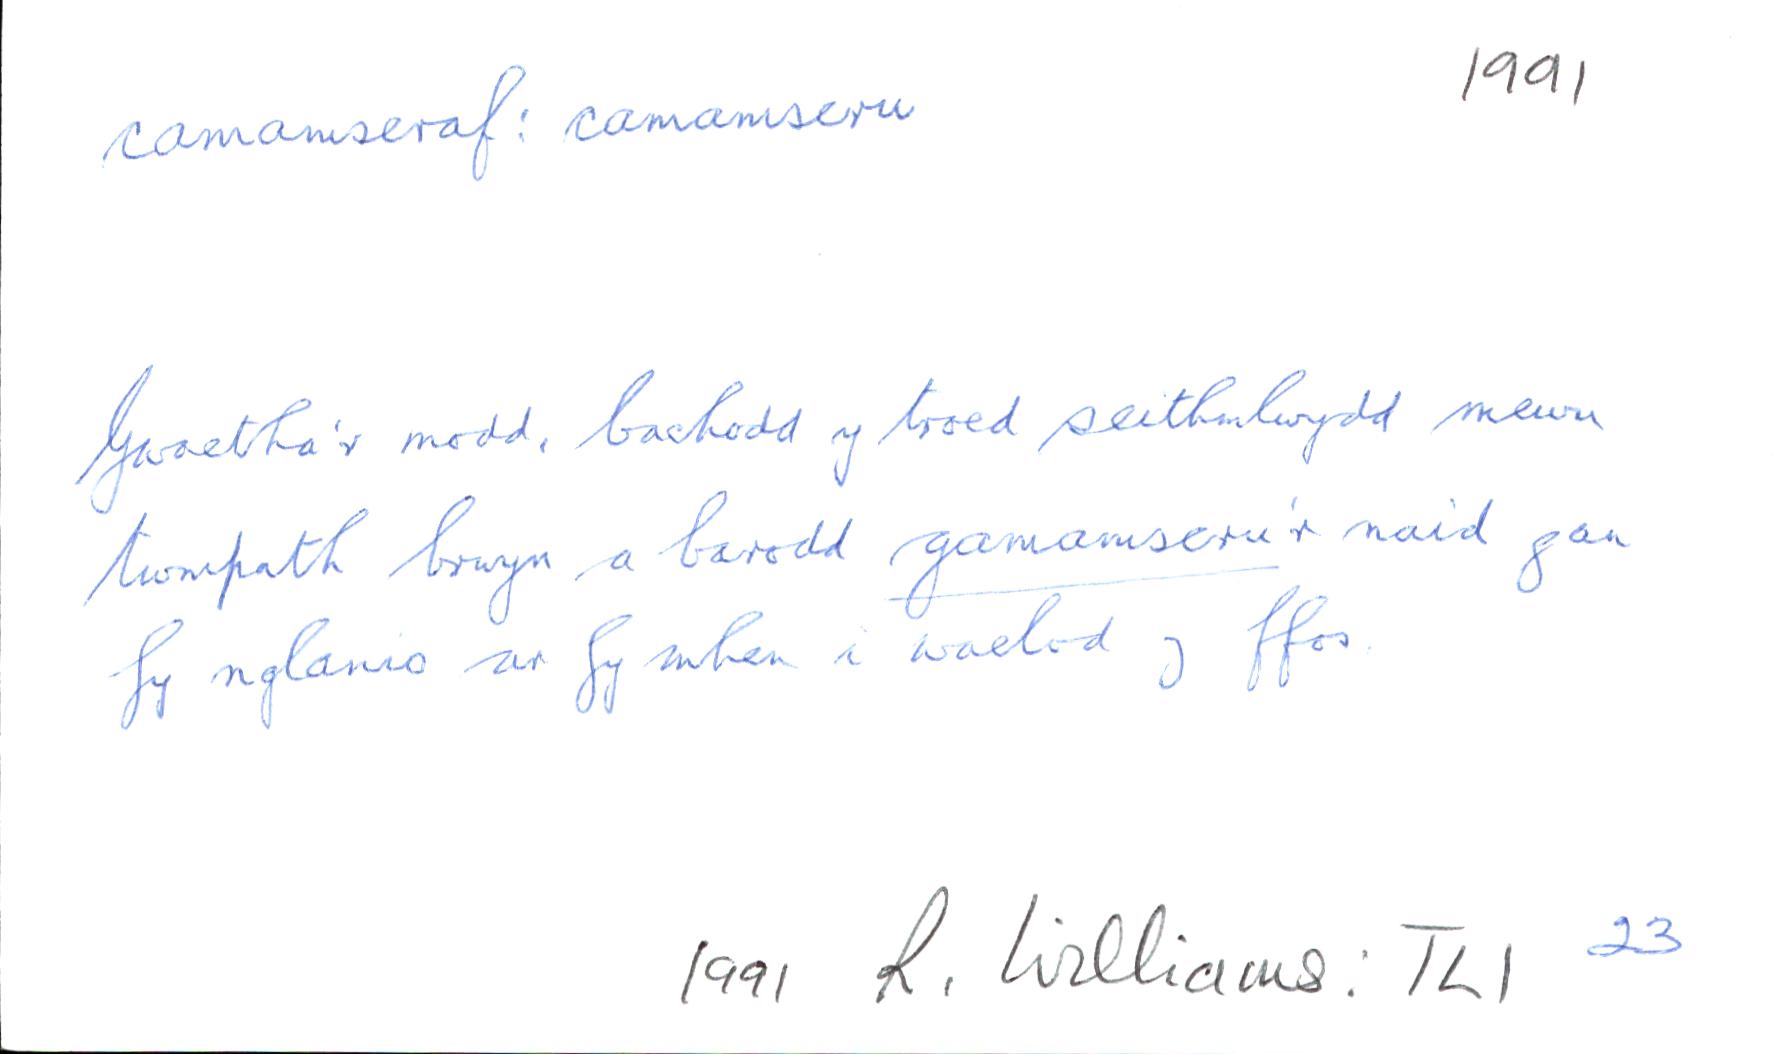 1991
camamseraf: camamseru
Gwaetha'r modd, bachodd y troed seithmlwydd mewn
twmpath brwyn a barodd gamamseru'r naid gan
fy nglanio ar fy mhen i waelod y ffos.
1991 R. Williams: TLI 23